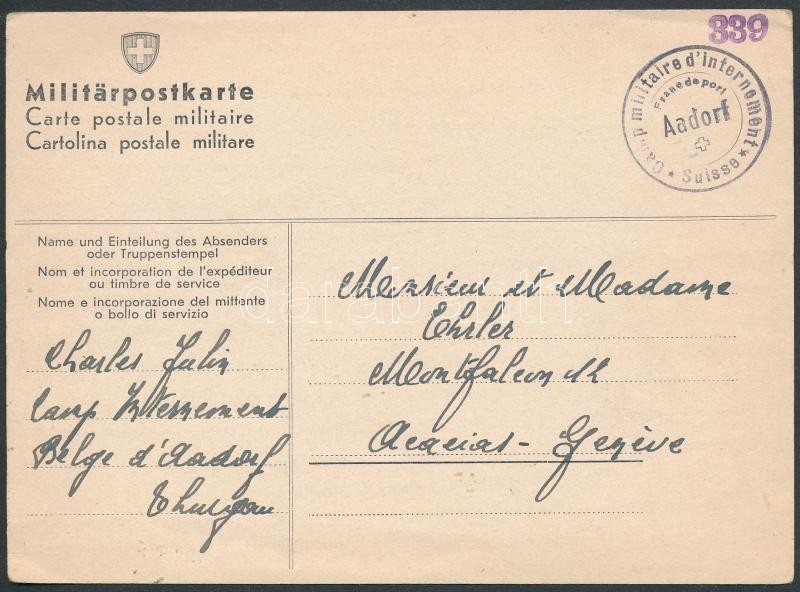 339
Militärpostkarte
Carte postale militaire
Cartolina postale militare
Camp militaire d'internement
Franc de port
Aadorf
★ Suisse ★
Name und Einteilung des Absenders
oder Truppenstempel
Nom et incorporation de l'expéditeur
ou timbre de service
Nome e incorporazione del mittente
o bollo di servizio
Charles Julin
Camp Internement
Belge d'Aadorf
Thurgau
Monsieur et Madame
Ehrler
Montfalcon 12
Acacias - Genève
darabanth